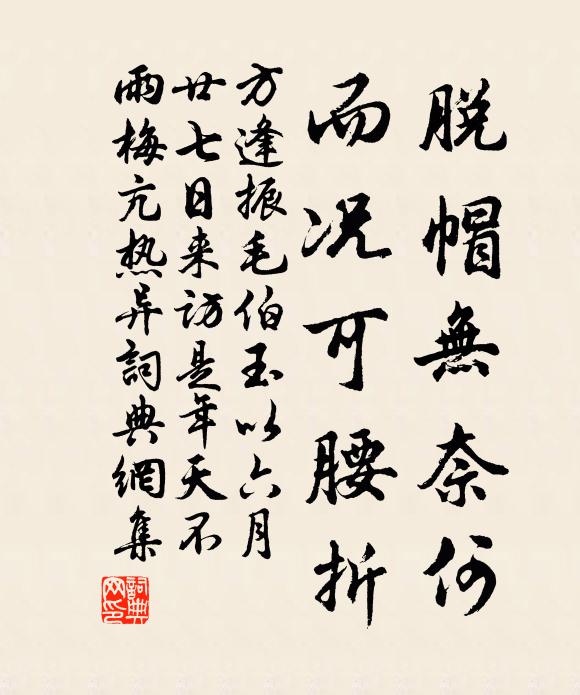 脱帽無奈何
而况可腰折
方逢振毛伯玉以六月
廿七日来訪是年天不
雨梅亢热异詞典網集
詞典
网印